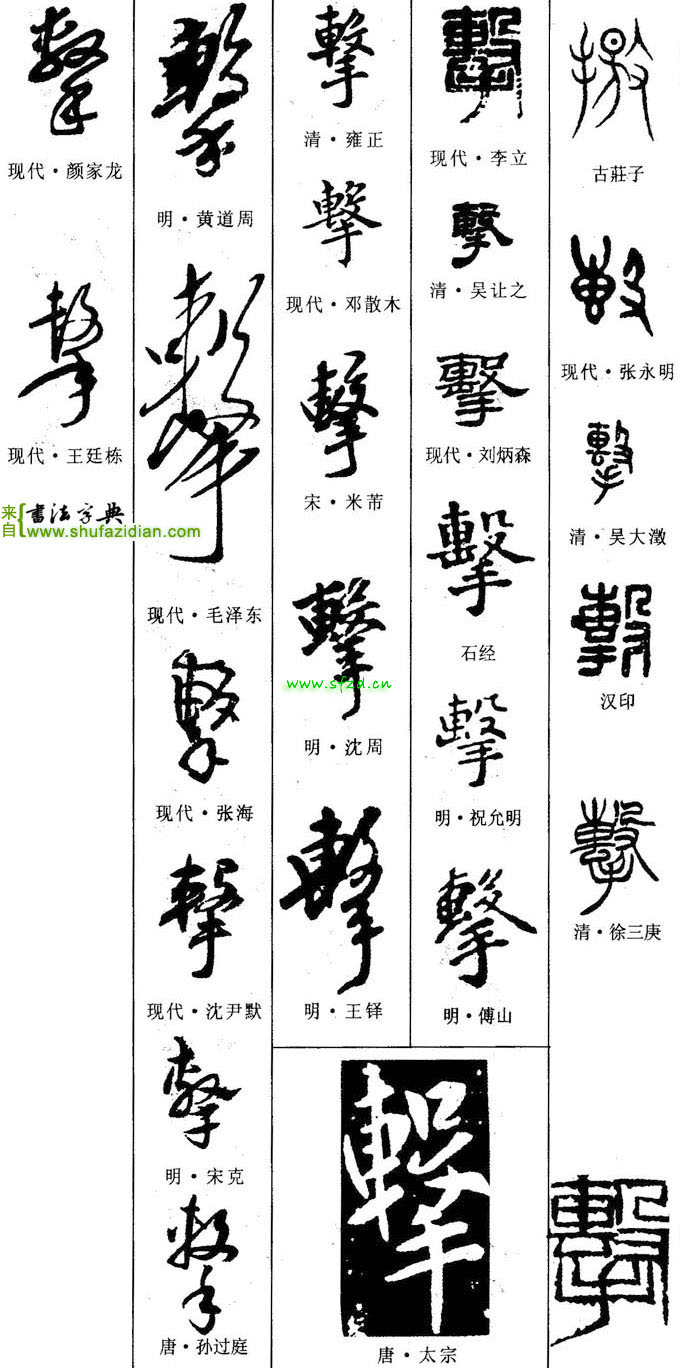 擊
现代·颜家龙
擊
现代·王廷栋
来自{書法字典
www.shufazidian.com
擊
明·黄道周
擊
现代·毛泽东
擊
现代·张海
擊
现代·沈尹默
擊
明·宋克
擊
唐·孙过庭
擊
清·雍正
擊
现代·邓散木
擊
宋·米芾
擊
www.sfzd.cn
明·沈周
擊
明·王铎
擊
唐·太宗
擊
现代·李立
擊
清·吴让之
擊
现代·刘炳森
擊
石经
擊
明·祝允明
擊
明·傅山
古莊子
现代·张永明
擊
清·吴大澂
擊
汉印
擊
清·徐三庚
擊